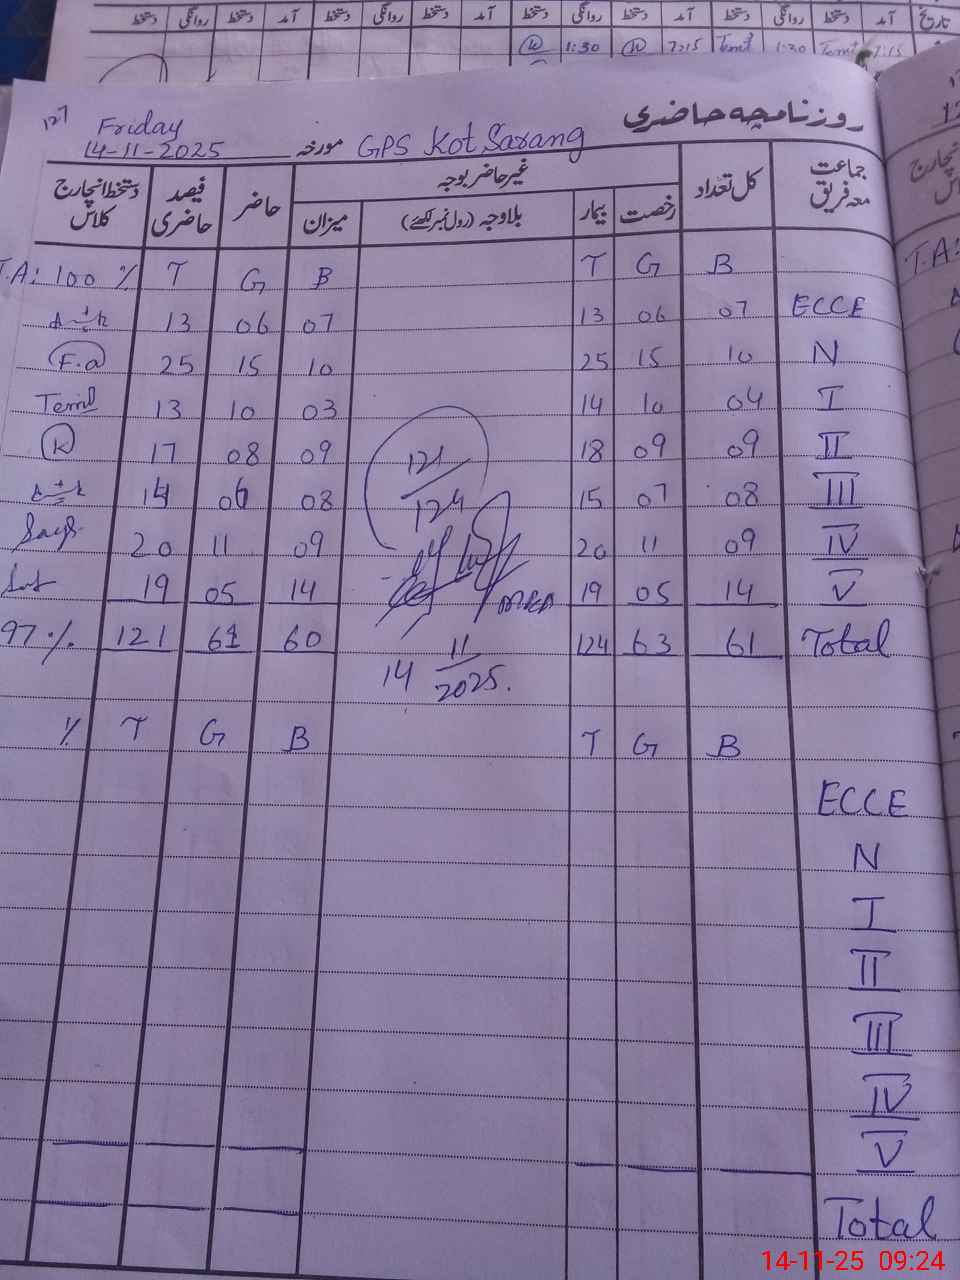 دستخط روانگی آمد دستخط روانگی آمد دستخط روانگی آمد دستخط روانگی آمد دستخط روانگی دستخط آمد تاریخ
1:30 7:15 1:30 7:15
127 Friday روزنامچہ حاضری
14-11-2025 مورخہ GPS Kot Sarang
جماعت معہ فریق کل تعداد غیر حاضر بوجہ حاضر فیصد حاضری دستخط انچارج کلاس
رخصت بیمار بلاوجہ (رول نمبر لکھئے) میزان
T.A: 100 % T G B T G B
13 06 07 13 06 07 ECCE
F.a 25 15 10 25 15 10 N
13 10 03 14 10 04 I
K 17 08 09 121 18 09 09 II
14 06 08 124 15 07 08 III
20 11 09 20 11 09 IV
19 05 14 19 05 14 V
97 % 121 61 60 124 63 61 Total
14 11
2025.
% T G B T G B
ECCE
N
I
II
III
IV
V
Total
14-11-25 09:24